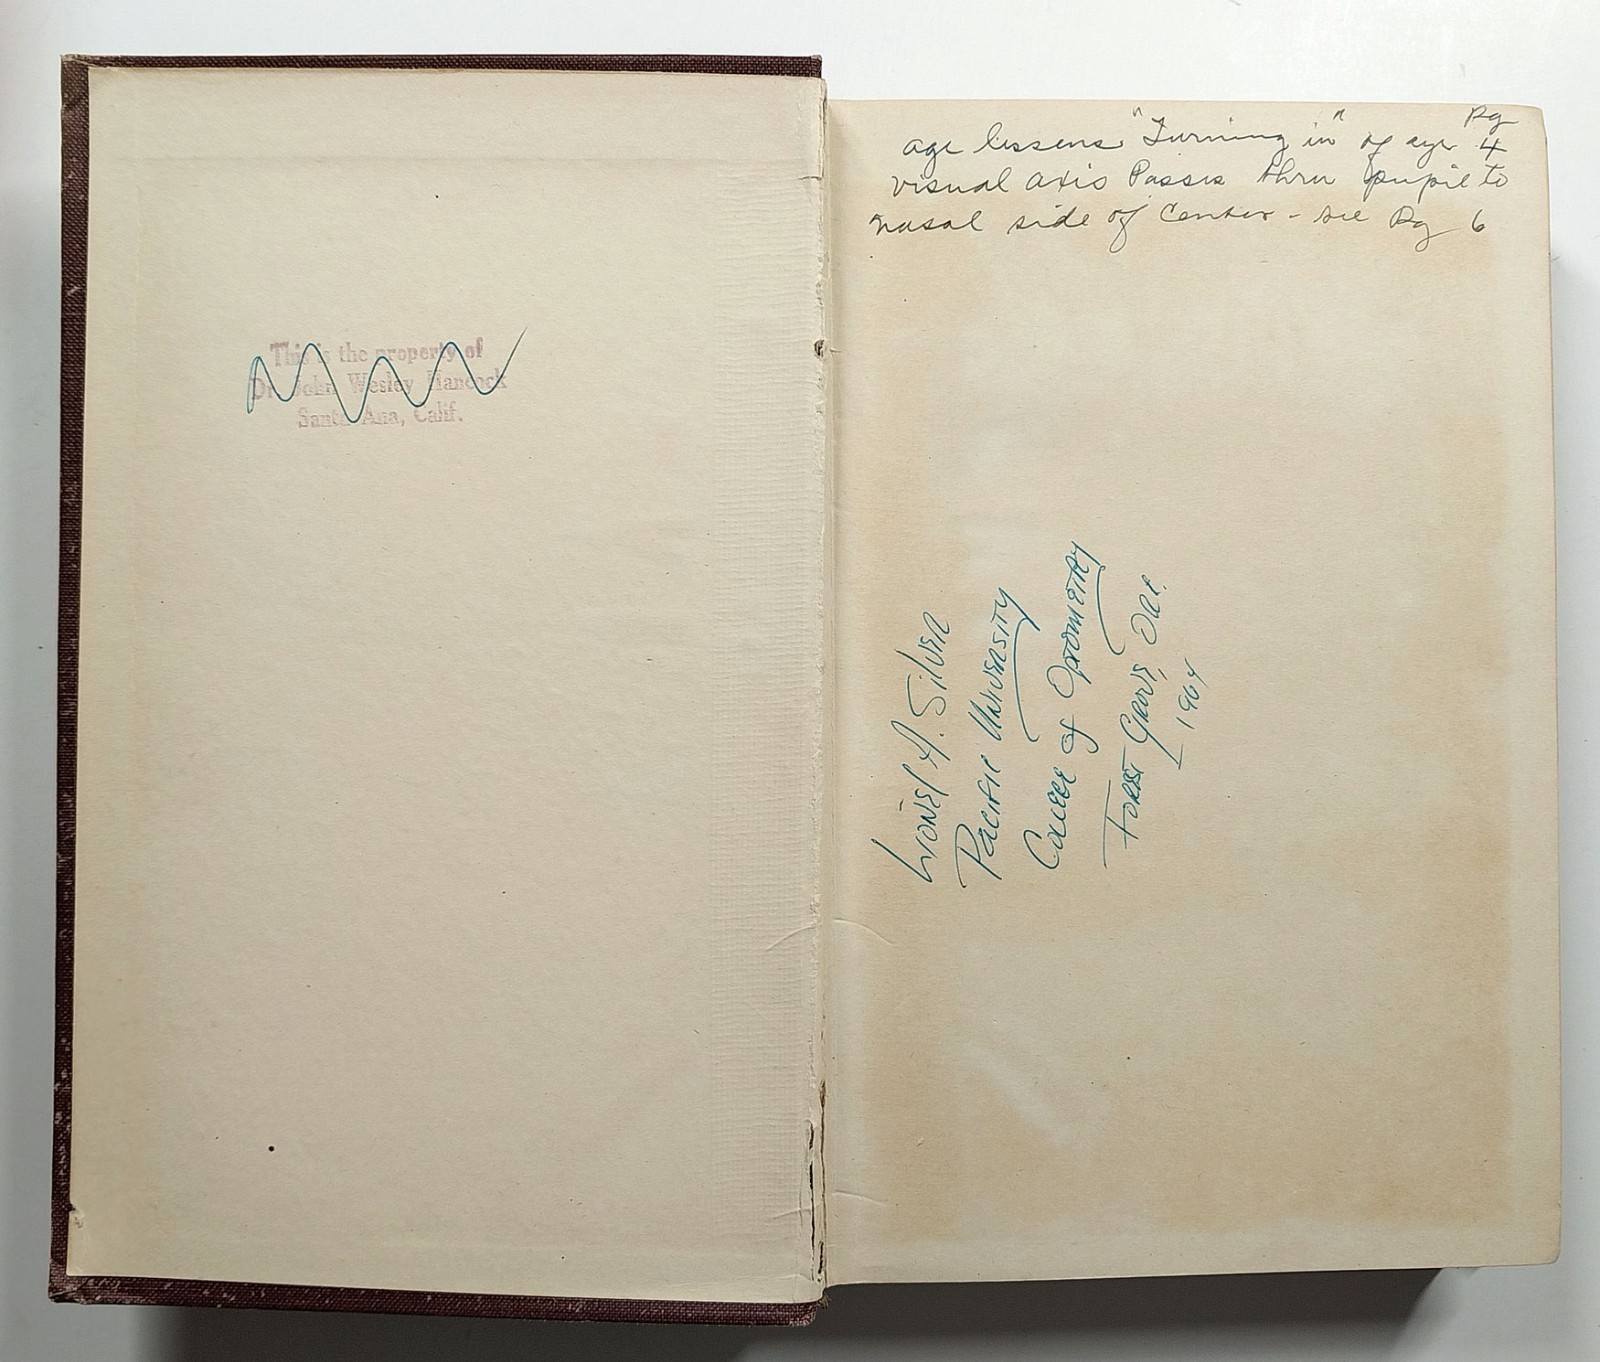 This is the property of
Dr. John Wesley Hancock
Santa Ana, Calif.
Pg
age lessens "Turning in" of eye 4
visual axis Passes thru pupil to
nasal side of Center - see Pg 6
Lionel A. Silver
Pacific University
College of Optometry
Forest Grove, Ore.
1964